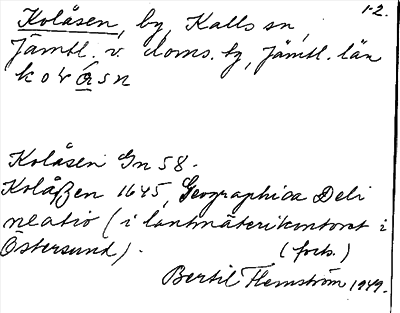 1-2.
Kolåsen, by, Kalls sn,
Jämtl. v. doms. tg, Jämtl. län
Kolåsen Gn 58.
Kolåßen 1645, Geographica Deli
neatio (i lantmäterikontoret i
Östersund). (forts.)
Bertil Flemström 1949.